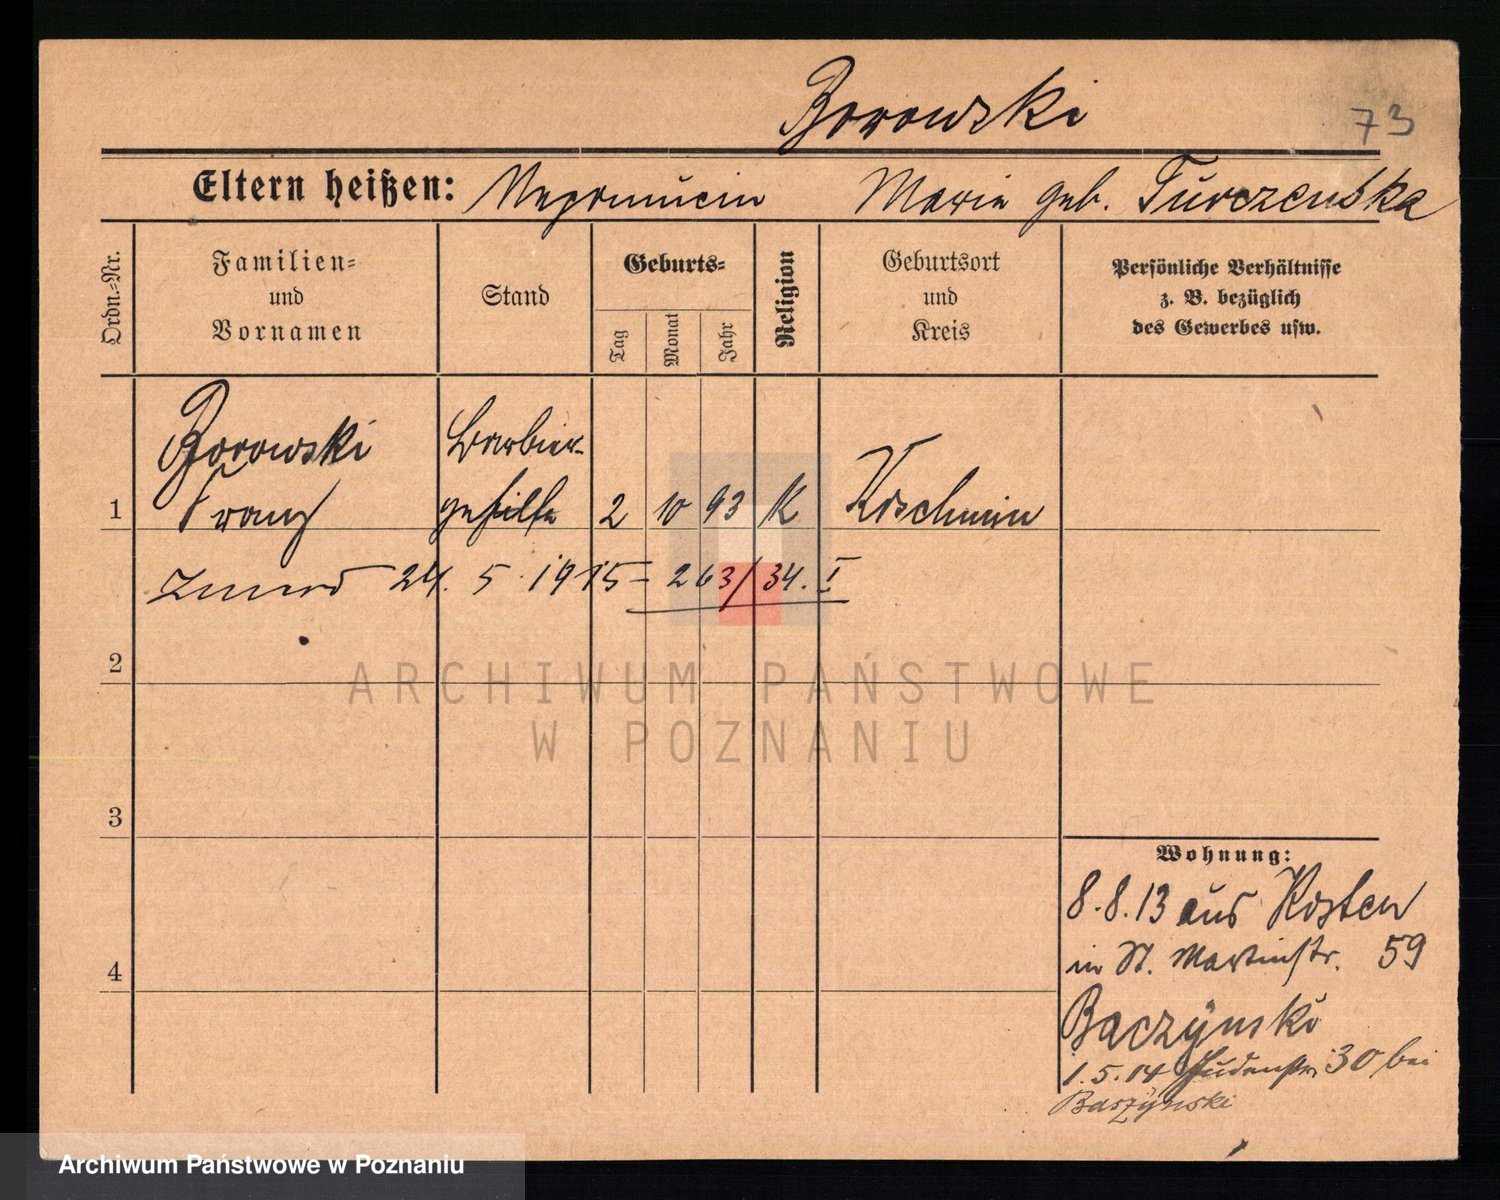 Borowski
73
Eltern heißen: Nepomucin Marie geb. Turczenska
Ordn.-Nr.
Familien- und Vornamen
Stand
Geburts-
Tag
Monat
Jahr
Religion
Geburtsort und Kreis
Persönliche Verhältnisse
z. B. bezüglich
des Gewerbes usw.
Borowski Barbier-
1 Franz gehilfe 2 10 93 K Koschmin
24. 5. 1915 - 263/34. I
2
ARCHIWUM PAŃSTWOWE
W POZNANIU
3
Wohnung:
8.8.13 aus Kosten
in St. Martinstr. 59
4
Baczynski
1.5.14 Judenstr 30 bei
Baszynski
Archiwum Państwowe w Poznaniu